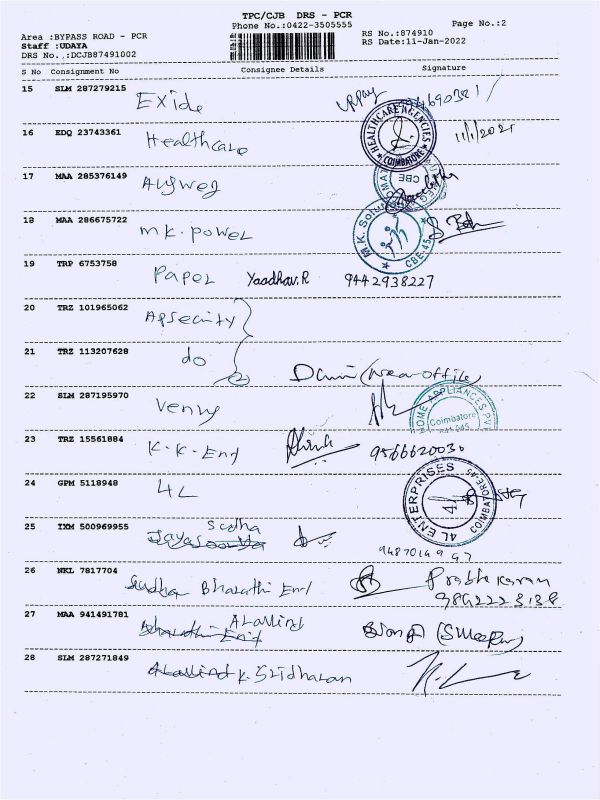 TPC/CJB DRS - PCR
Phone No.:0422-3505555
Page No.:2
Area :BYPASS ROAD - PCR
Staff :UDAYA
DRS No.,:DCJB87491002
RS No.:874910
RS Date:11-Jan-2022
S No Consignment No Consignee Details Signature
15 SLM 287279215
Exide
16 EDQ 23743361
Healthcare
HEALTHCARE AGENCIES
COIMBATORE
11/1/2021
17 MAA 285376149
CBE
18 MAA 286675722
M.K. Power
CBE-45
19 TRP 6753758
Paper Yaadhav.R 9442938227
20 TRZ 101965062
Apsecurity
21 TRZ 113207628
do
(Near office)
22 SLM 287195970
Venry
HOME APPLIANCES PVT
Coimbatore
23 TRZ 15561884
K.K. Eng 9566620030
24 GPM 5118948
4L
4L ENTERPRISES
4L
COIMBATORE-45
25 IXM 500969955
Sudha
9487014947
26 NKL 7817704
Sudha Bharathi Eng
Prabhakaran
9892223138
27 MAA 941491781
Bharathi Eng
28 SLM 287271849
K. Sridharan